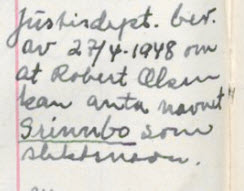 Justisdept. bev.
av 27/4-1948 om
at Robert Olsen
kan anta navnet
Grinnbo som
slektsnavn.